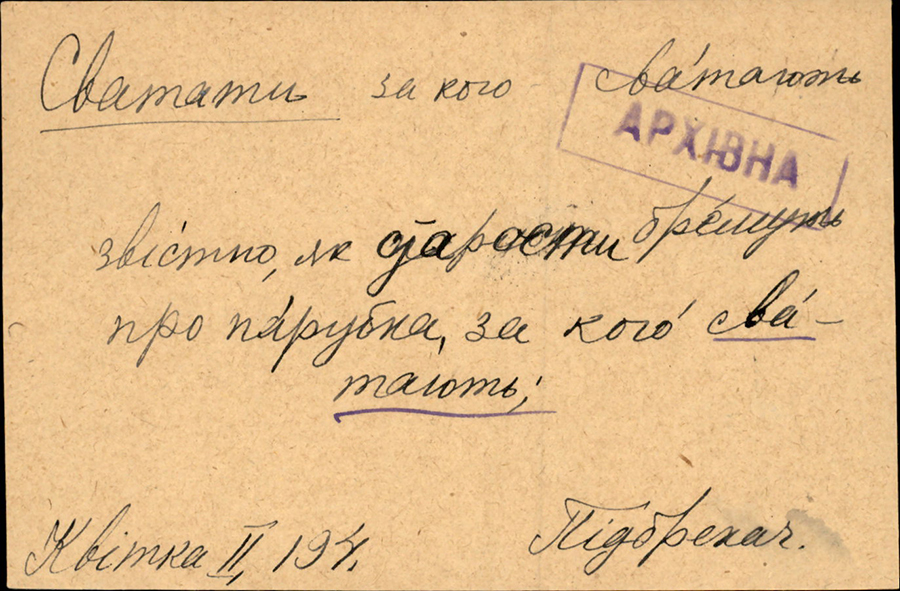 Сватати за кого – сва́тають
АРХІВНА
зві́стно, як старости бре́шуть
про па́рубка, за кого́ сва́-
тають;
Квітка II, 194. Підбрехач.